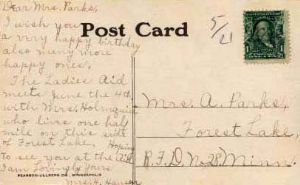 Dear Mrs. Parks,
I wish you
a very happy birthday
also many more
happy ones.
The Ladies Aid
meets June the 4th
with Mrs. Holmquist
who lives one half
mile on this side
of Forest Lake. Hoping
to see you at the Aid
I am Lovingly Yours
Mrs. H. Hanson
Post Card
5/21
Mrs. A. Parks,
Forest Lake,
R.F.D. No 28 Minn.